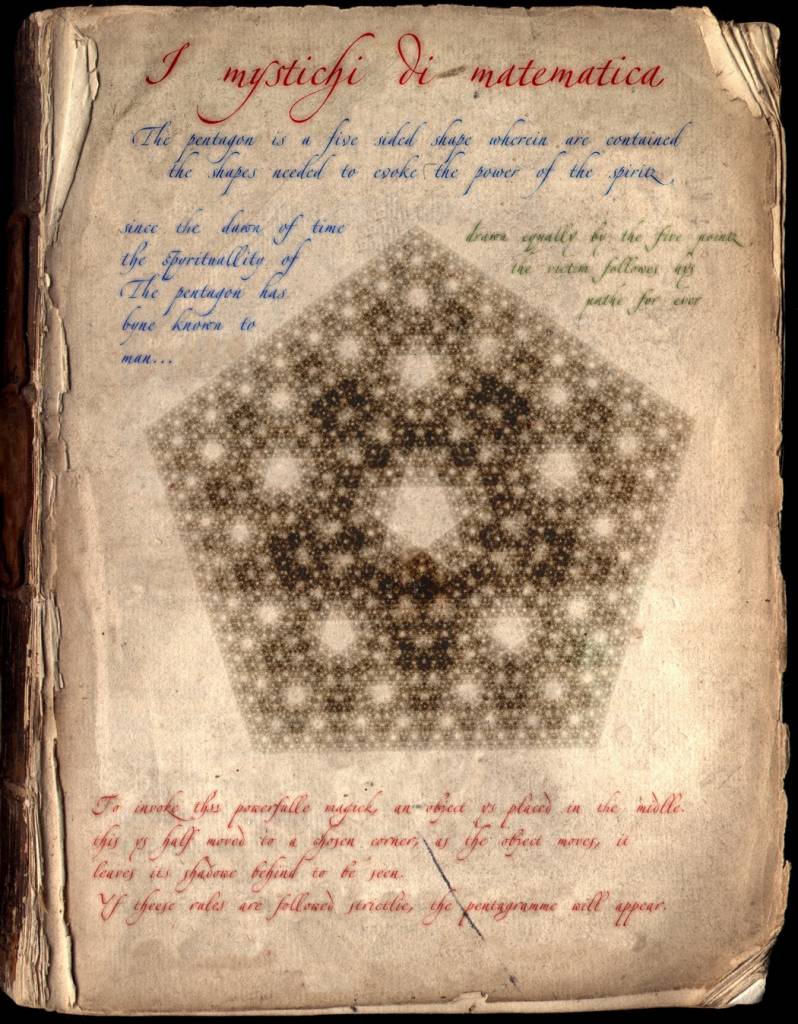 I mystichi di matematica
The pentagon is a five sided shape wherein are contained
the shapes needed to evoke the power of the spiritz
since the dawn of time
the spyrituallity of
The pentagon has
byne known to
man...
drawn equally by the five pointz
the victim followes hys
pathe for ever
To invoke thys powerfulle magick, an object ys placed in the middle.
this ys half moved to a chosen corner, as the object moves, it
leaves its shadowe behind to be seen.
Yf theese rules are followed strictlie, the pentagramme will appear.